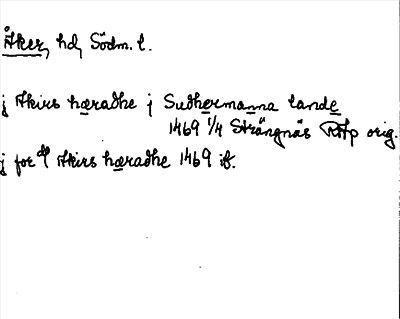 Åker, hd, Södm. l.
j Akirs hæradhe j Sudhermanna lande
1469 1/4 Strängnäs RAp orig.
j for:de Akirs hæradhe 1469 if.